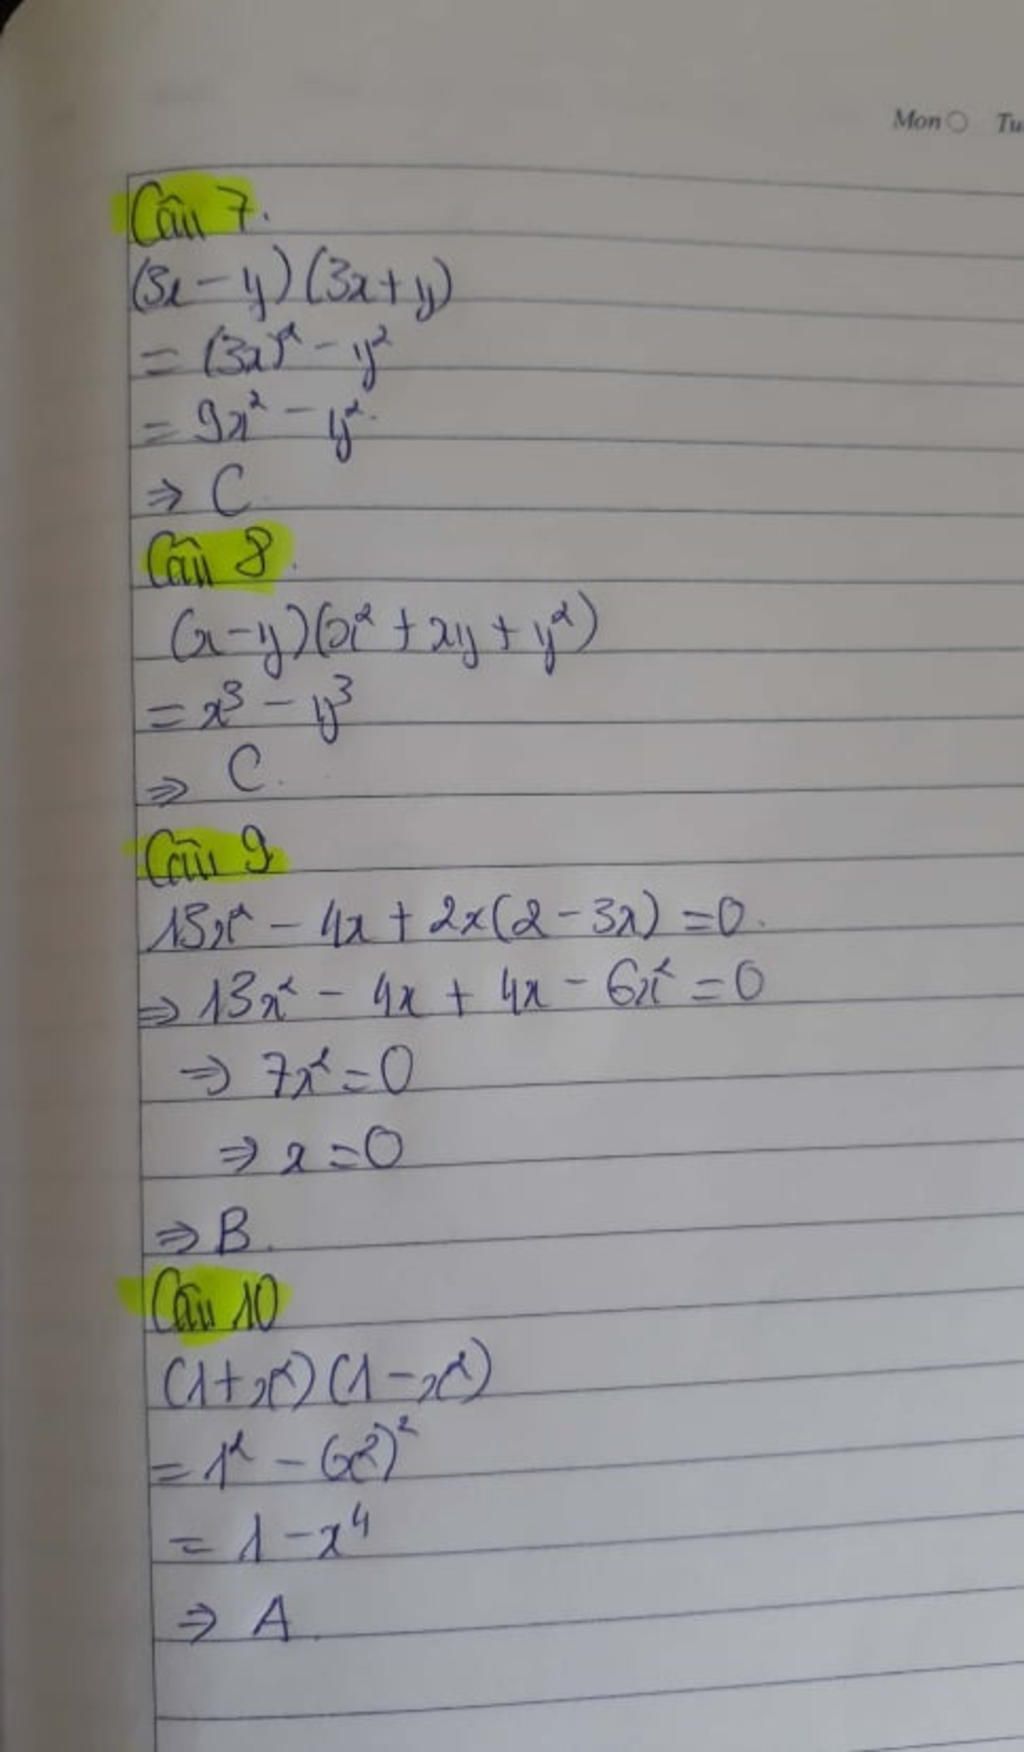 Mon Tu
Câu 7.
(3x - y)(3x + y)
= (3x)² - y²
= 9x² - y².
⇒ C.
Câu 8.
(x - y)(x² + xy + y²)
= x³ - y³
⇒ C.
Câu 9
13x² - 4x + 2x(2 - 3x) = 0.
⇒ 13x² - 4x + 4x - 6x² = 0
⇒ 7x² = 0
⇒ x = 0
⇒ B.
Câu 10
(1 + x²)(1 - x²)
= 1² - (x²)²
= 1 - x⁴
⇒ A.